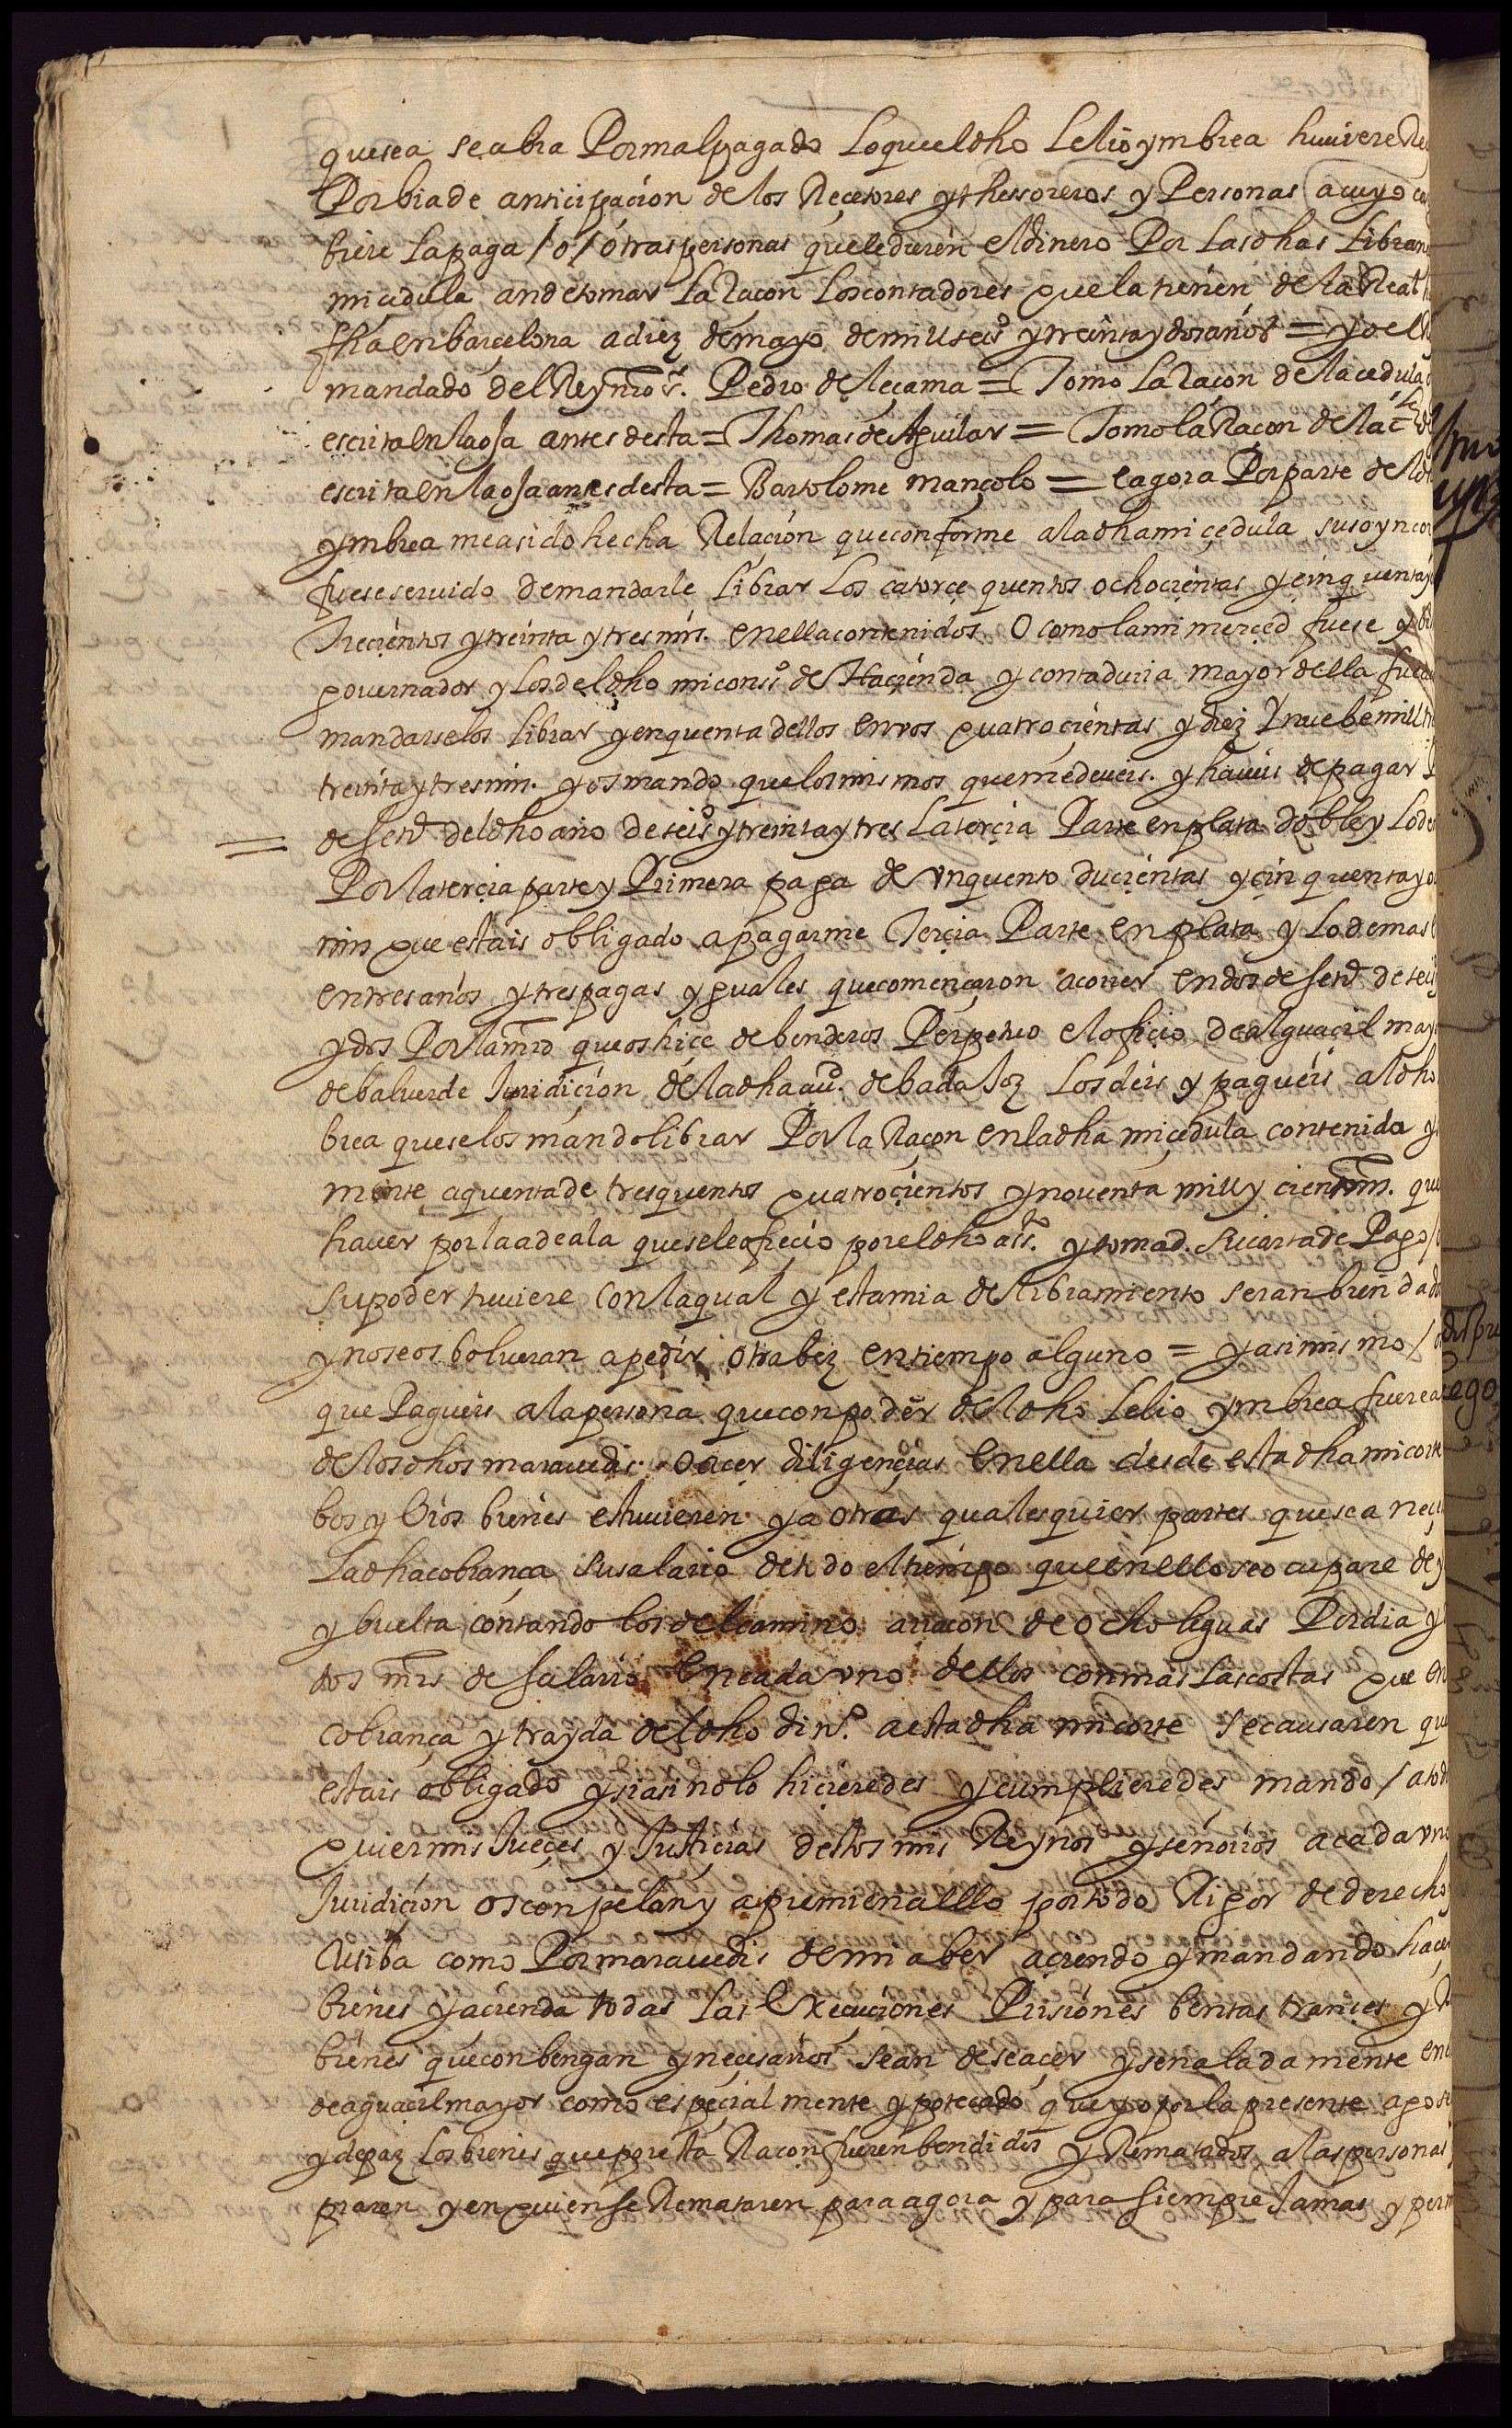 que sea se abra Por mal pagado Lo que el dho Lelio ymbrea huuiere Re
Por bia de anticipaçion de los Reçetores y thessoreros y Personas a cuyo ca
biere la paga / o / otras personas que le dieren el dinero Por Las dhas Libran
mi çedula an de tomar La raçon Los contadores que la tienen de la Real h
fha en barçelona a diez de mayo de mill seisº y treinta y dos años = yo el R
mandado del Rey nrõ sr. Pedro de Leçama = Tomo La raçon de la cedula
escrita en la oja antes desta = Thomas de Aguilar = Tomo la Raçon de la çla
escrita en la oja antes desta = Bartolome mançolo = e agora Por parte del dh
ymbrea me a sido hecha Relaçion que conforme a la dha mi çedula suso yncor
fuese seruido de mandarle Librar Los catorçe quentos ochoçientas y çinquenta y
Treçientos y treinta y tres mrs. en ella contenidos. O como la mi merçed fuese y
gouernador y Los del dho mi consº de Haçienda y contaduria mayor della fue
mandarselos librar y en quenta dellos en vos quatroçientas y diez y nuebe mill tr
treinta y tres mrs. y os mando que los mismos que me deueis. y haueis de pagar
= de setre del dho año de seisº y treinta y tres La terçia Parte en plata doble y Lo de
Por la terçia parte y Primera paga de vn quento duçientas y çinquenta y o
mrs que estais obligado a pagarme Terçia Parte en plata y Lo demas
en tres años y tres pagas yguales que començaron a correr en dos de setre de seis
y dos Por la mrd que os hiçe de benderos Perpetuo el ofiçio de alguaçil may
de balverde Juridiçion de la dha çiud. de badajoz Los deis y pagueis al dho
brea que se los mando librar Por la Raçon en la dha mi çedula contenida y
mente a quenta de tres quentos quatroçientos y nouenta mill y cien mrs. que
hauer por la adeala que se le ofreçio por el dho assto. y tomad. su carta de Pago /
su poder tuuiere con la qual y esta mia de libramiento seran bien dado
y no se os bolueran a pedir otra bez en tiempo alguno = y asimismo /
que Pagueis a la persona que con poder del dho Lelio ymbrea fuere a
de los dhos marauedis. o açer diligençias en ella desde esta dha mi corte
bos y bros bienes estuuieren y a otras qualesquier partes que sea neçe
La dha cobrança su salario de todo el tiempo que en ello se ocupare de y
y buelta contando los del camino a raçon de ocho leguas Por dia y
dos mrs de salario en cada vno dellos con mas Las costas que en
cobrança y trayda del dho dinº. a esta dha mi corte se causaren que
estais obligado y si asi no lo hiçieredes y cumplieredes mando / a tod
quier mis Jueçes y Justiçias destos mis Reynos y señorios a cada vno
Juridiçion os conpelan y apremien a ello por todo Rigor de derecho
cutiba como Por marauedis de mi aber açiendo y mandando haçer
bienes y açienda todas Las Execuçiones Prisiones bentas trançes y R
bienes que conbengan y neçesarios sean de se açer y señaladamente en
de aguaçil mayor como espeçialmente ypotecado que yo por la presente ago s
y de paz Los bienes que por esta Raçon fueren bendidos y Rematados a las personas
praren y en quien se Remataren para agora y para siempre Jamas y perm